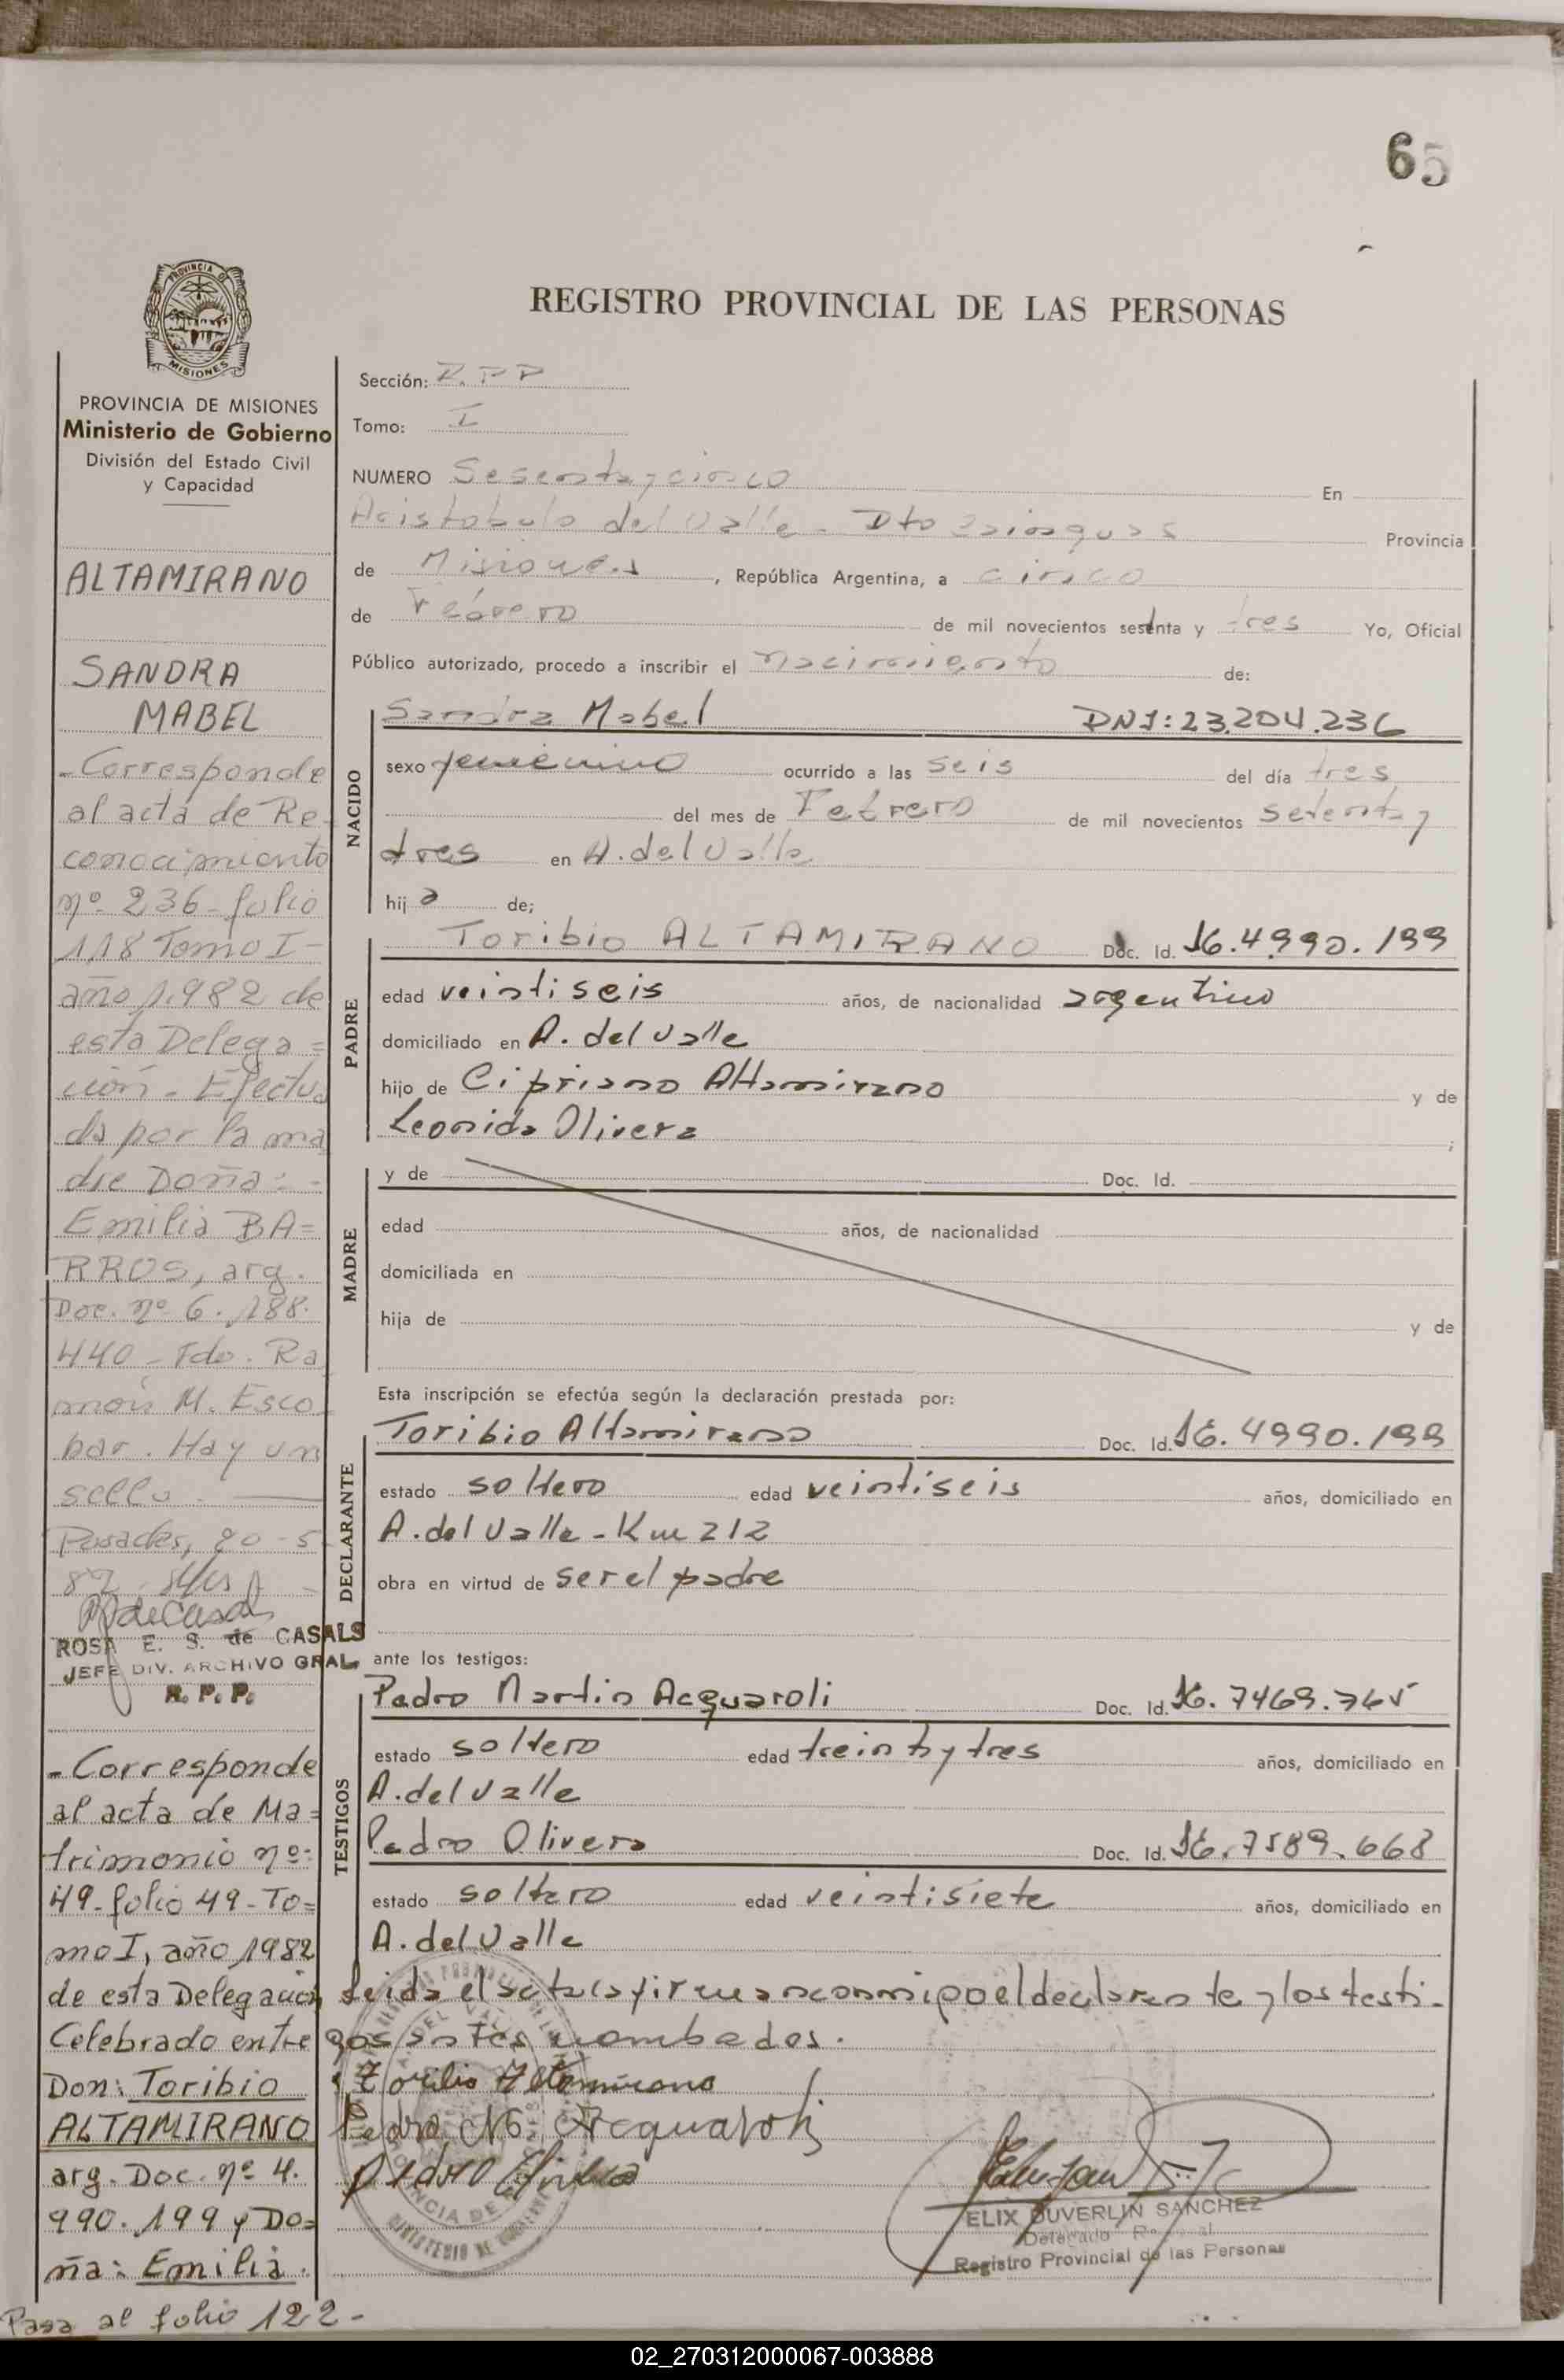 65
PROVINCIA DE
MISIONES
REGISTRO PROVINCIAL DE LAS PERSONAS
PROVINCIA DE MISIONES
Ministerio de Gobierno
División del Estado Civil
y Capacidad
ALTAMIRANO
SANDRA
MABEL
- Corresponde
al acta de Re-
conocimiento
nº 236 - folio
118 Tomo I -
año 1.982 de
esta Delega=
ción - Efectua
da por la ma
dre Doña: -
Emilia BA=
RROS, arg.
Doc. nº 6.188.
440 - Fdo. Ra
món M. Esco
bar. Hay un
sello.
Posadas, 20-5
82
ROSA E. S. de CASALS
JEFE DIV. ARCHIVO GRAL.
R. P. P.
- Corresponde
al acta de Ma=
trimonio nº:
49 - folio 49 - To=
mo I, año 1982
de esta Delegación
Celebrado entre
Don: Toribio
ALTAMIRANO
arg. Doc. nº 4.
990.199 y Do=
ña: Emilia.
Pasa al folio 122-
Sección: R.P.P
Tomo: I
NUMERO Sesenta y cinco En
Aristobulo del Valle - Dto Cainguas Provincia
de Misiones, República Argentina, a cinco
de Febrero de mil novecientos setenta y tres Yo, Oficial
Público autorizado, procedo a inscribir el nacimiento de:
NACIDO
Sandra Mabel DNI: 23.204.236
sexo femenino ocurrido a las seis del día tres
del mes de Febrero de mil novecientos setenta y
tres en A. del Valle
hija de;
PADRE
Toribio ALTAMIRANO Doc. Id. 16.4990.199
edad veintiseis años, de nacionalidad argentino
domiciliado en A. del Valle
hijo de Cipriano Altamirano y de
Leonida Olivera ;
MADRE
y de Doc. Id.
edad años, de nacionalidad
domiciliada en
hija de y de
Esta inscripción se efectúa según la declaración prestada por:
DECLARANTE
Toribio Altamirano Doc. Id. 16.4990.199
estado soltero edad veintiseis años, domiciliado en
A. del Valle - Km 212
obra en virtud de ser el padre
ante los testigos:
TESTIGOS
Pedro Martin Acquaroli Doc. Id. 16.7469.765
estado soltero edad treinta y tres años, domiciliado en
A. del Valle
Pedro Olivera Doc. Id. 16.7589.668
estado soltero edad veintisiete años, domiciliado en
A. del Valle
Leida el acta la firman conmigo el declarante y los testi-
gos antes nombados.
Toribio Altamirano
Pedro M. Acquaroli
Pedro Olivera
ELIX DUVERLIN SANCHEZ
Delegado
Registro Provincial de las Personas
02_270312000067-003888